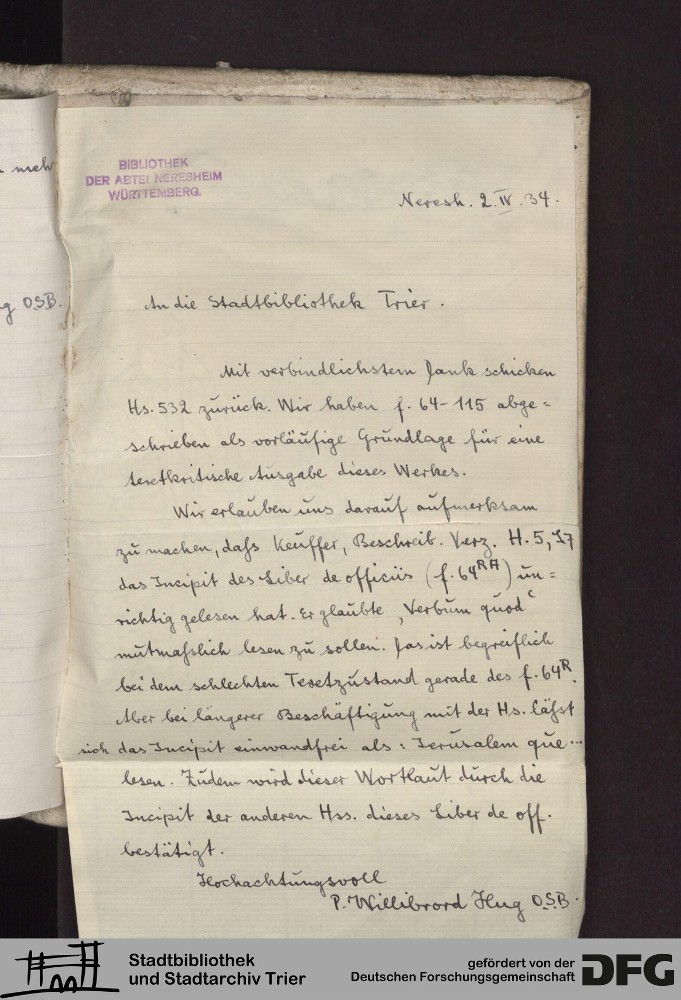 mehr
g OSB.
BIBLIOTHEK
DER ABTEI NERESHEIM
WÜRTTEMBERG.
Neresh. 2.IV.34.
An die Stadtbibliothek Trier.
Mit verbindlichstem Dank schicken
Hs. 532 zurück. Wir haben f. 64-115 abge=
schrieben als vorläufige Grundlage für eine
textkritische Ausgabe dieses Werkes.
Wir erlauben uns darauf aufmerksam
zu machen, dafs Keuffer, Beschreib. Verz. H. 5, 17
das Incipit des Liber de officiis (f. 64RA) un=
richtig gelesen hat. Er glaubte „Verbum quod“
mutmafslich lesen zu sollen. Das ist begreiflich
bei dem schlechten Textzustand gerade des f. 64R.
Aber bei längerer Beschäftigung mit der Hs. läfst
sich das Incipit einwandfrei als: Jerusalem que...
lesen. Zudem wird dieser Wortlaut durch die
Incipit der anderen Hss. dieses Liber de off.
bestätigt.
Hochachtungsvoll
P. Willibrord Hug O.S.B.
Stadtbibliothek
und Stadtarchiv Trier
gefördert von der
Deutschen Forschungsgemeinschaft
DFG